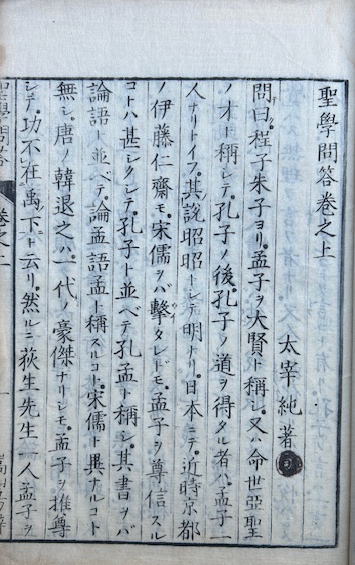 聖學問答卷之上
太宰純著
問曰。程子朱子ヨリ。孟子ヲ大賢ト稱シ。又ハ命世亞聖
ノ才ト稱シテ。孔子ノ後。孔子ノ道ヲ得タル者ハ。孟子一
人ナリトイフ。其說昭昭トシテ明ナリ。日本ニテ。近時京都
ノ伊藤仁齋モ。宋儒ヲバ擊タレドモ。孟子ヲ尊信スル
コトハ甚シクシテ。孔子ト並ベテ孔孟ト稱シ。其書ヲバ
論語ト並ベテ。論孟語孟ト稱スルコト。宋儒ト異ナルコト
無シ。唐ノ韓退之ハ。一代ノ豪傑ナリシモ。孟子ヲ推尊
シテ。功不在禹下ト云リ。然ルニ荻生先生一人孟子ヲ